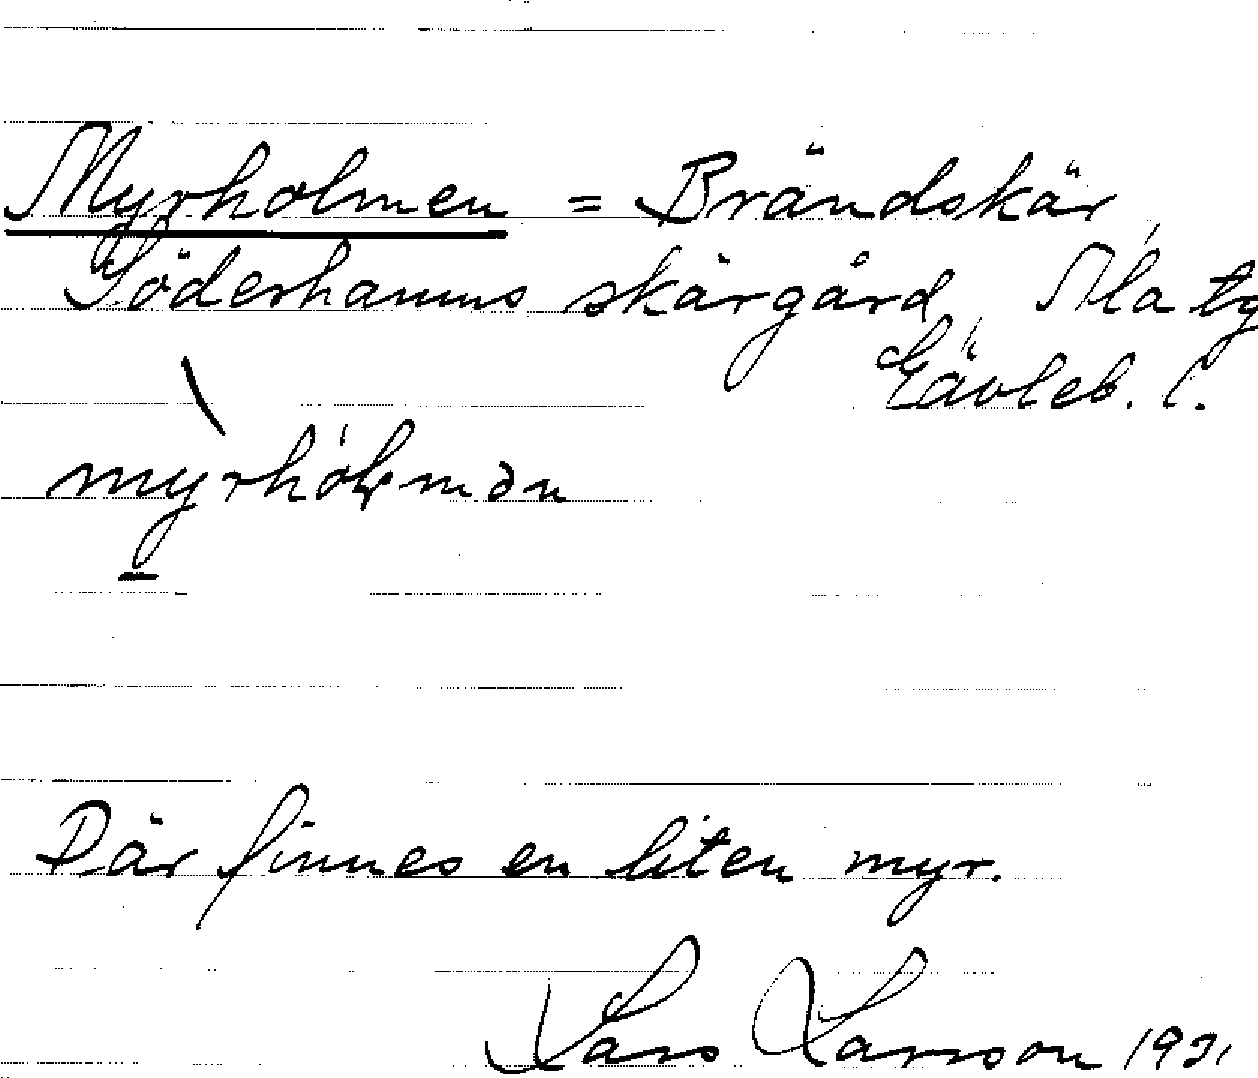 Myrholmen = Brändskär,
Söderhamns skärgård, Ala tg
Gävleb. l.
myrhólmən
Där finnes en liten myr.
Lars Larsson 1931